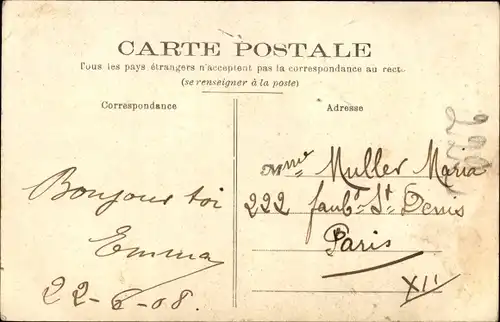 CARTE POSTALE
Tous les pays étrangers n'acceptent pas la correspondance au recto
(se renseigner à la poste)
Correspondance
Adresse
Bonjour toi
Emma
22-6-08.
Mme Muller Maria
222 faubg St Denis
Paris
XII